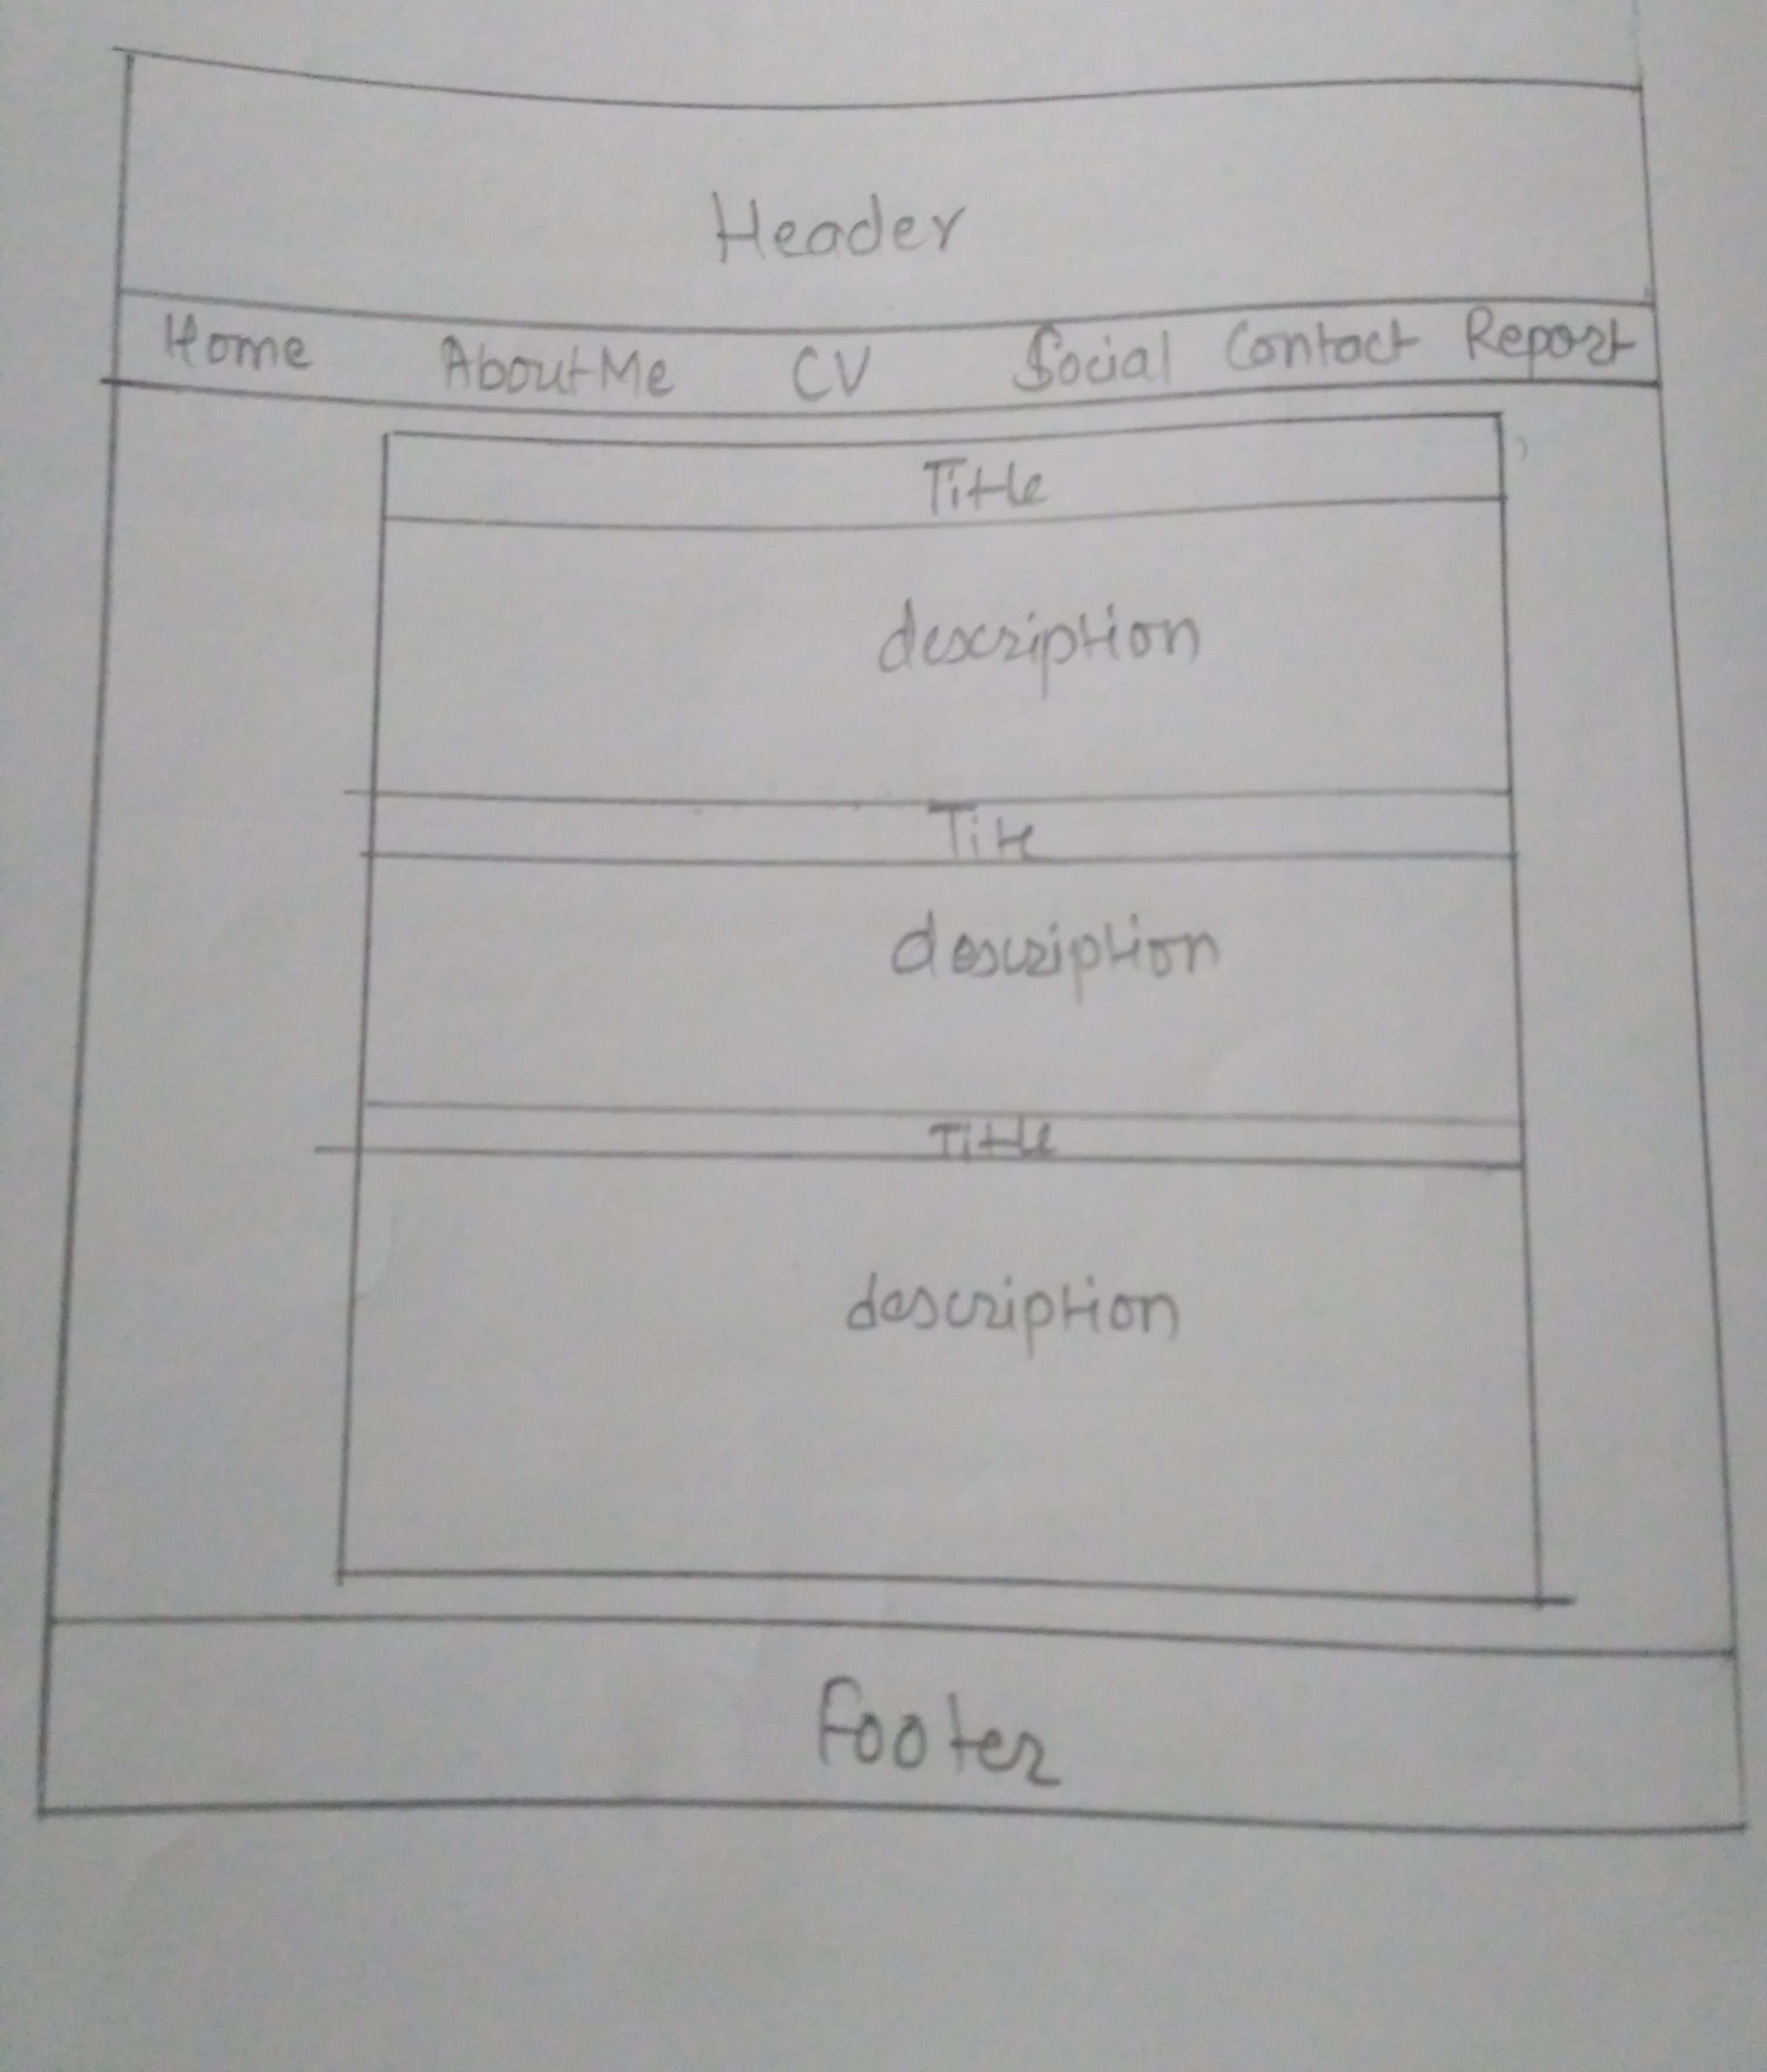 Header
Home AboutMe CV Social Contact Report
Title
description
Title
description
Title
description
Footer